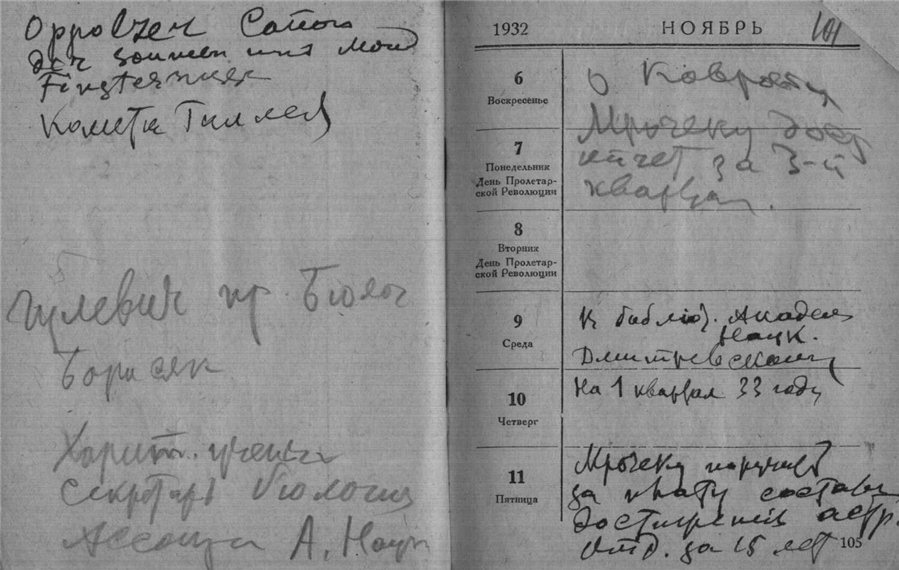 Oppolzer Canon
der Sonnen und Mond
Finsternisse
Комета Галлея
Гулевич пр. Биолог
Борисяк
Харит. ученый
секретарь биологич
Ассоци А. Наук
1932 НОЯБРЬ 101
6
Воскресенье
О Коврову
Мрочеку дост
7
Понедельник
День Пролетар-
ской Революции
отчет за 3-й
квартал.
8
Вторник
День Пролетар-
ской Революции
9
Среда
К библиот. Академ
Наук.
Дмитревскому
10
Четверг
На 1 квартал 33 году
11
Пятница
Мрочеку поручить
за плату состав
достижения астр.
отд. за 15 лет
105